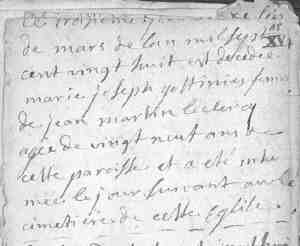 Le troisieme jour
de mars de lan mil sept
cent vingt huit est decedée
marie joseph femme
de jean martin leclercq
agée de vingt neuf ans de
cette paroisse et a eté inhu
mée le jour suivant au
cimetiere de cette Eglise